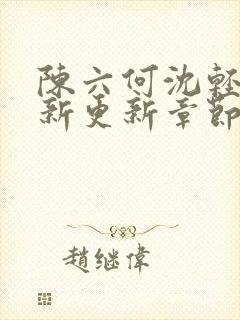 陳六何沈輕
新更新章節
趙继偉